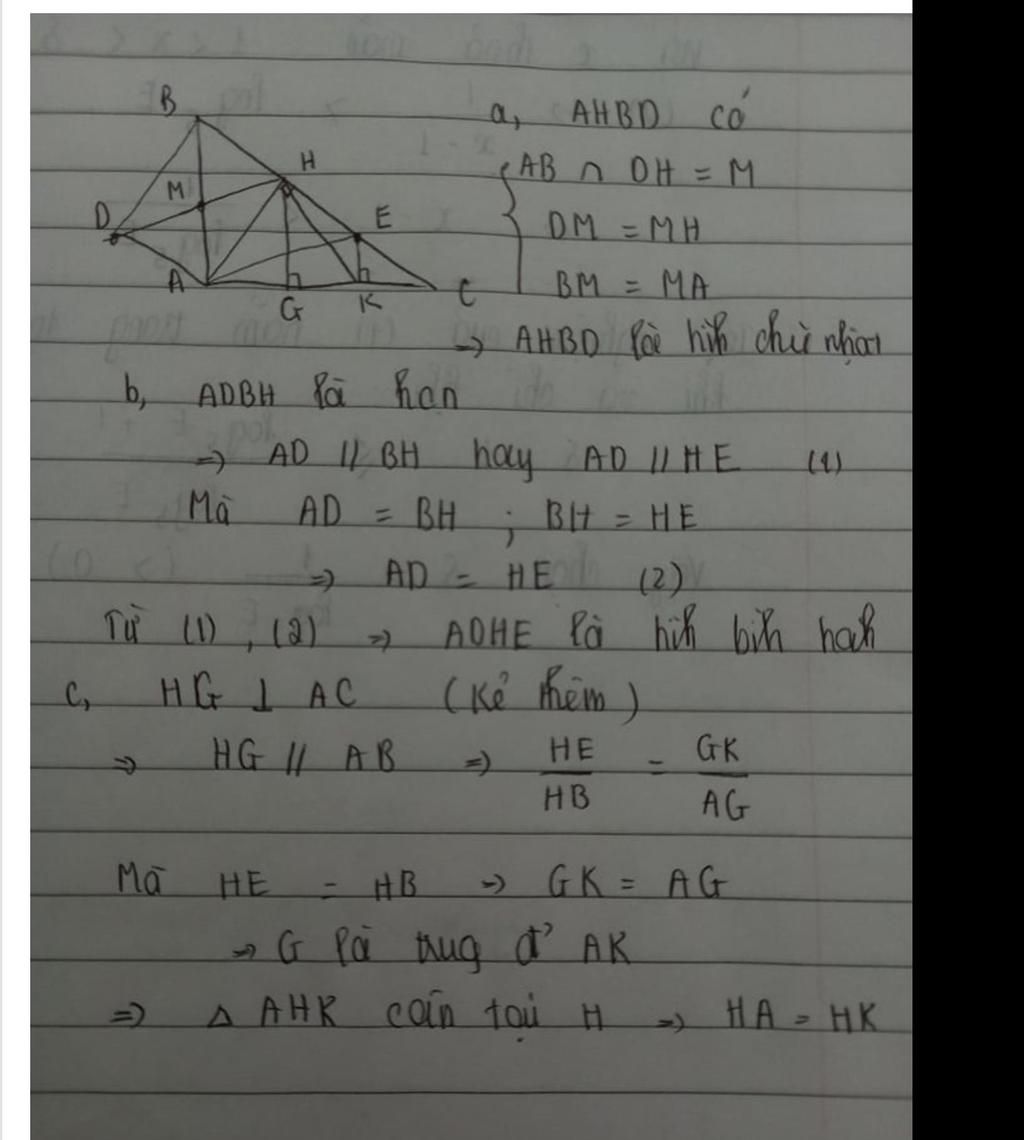 B
H
M
D
E
A
G
K
C
a, AHBD có
AB ∩ DH = M
DM = MH
BM = MA
=> AHBD là hìh chữ nhật
b, ADBH là hcn
=> AD // BH hay AD // HE (1)
Mà AD = BH ; BH = HE
=> AD = HE (2)
Từ (1), (2) => ADHE là hìh bìh hàh
c, HG ⊥ AC (Kẻ thêm)
=> HG // AB => HE/HB = GK/AG
Mà HE = HB => GK = AG
=> G là trug đ' AK
=> Δ AHK cân tại H => HA = HK